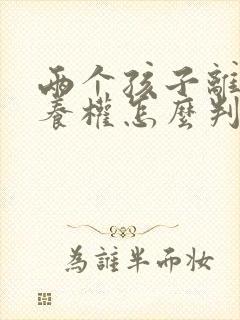 两个孩子離
養權怎麼判
為誰半而妆